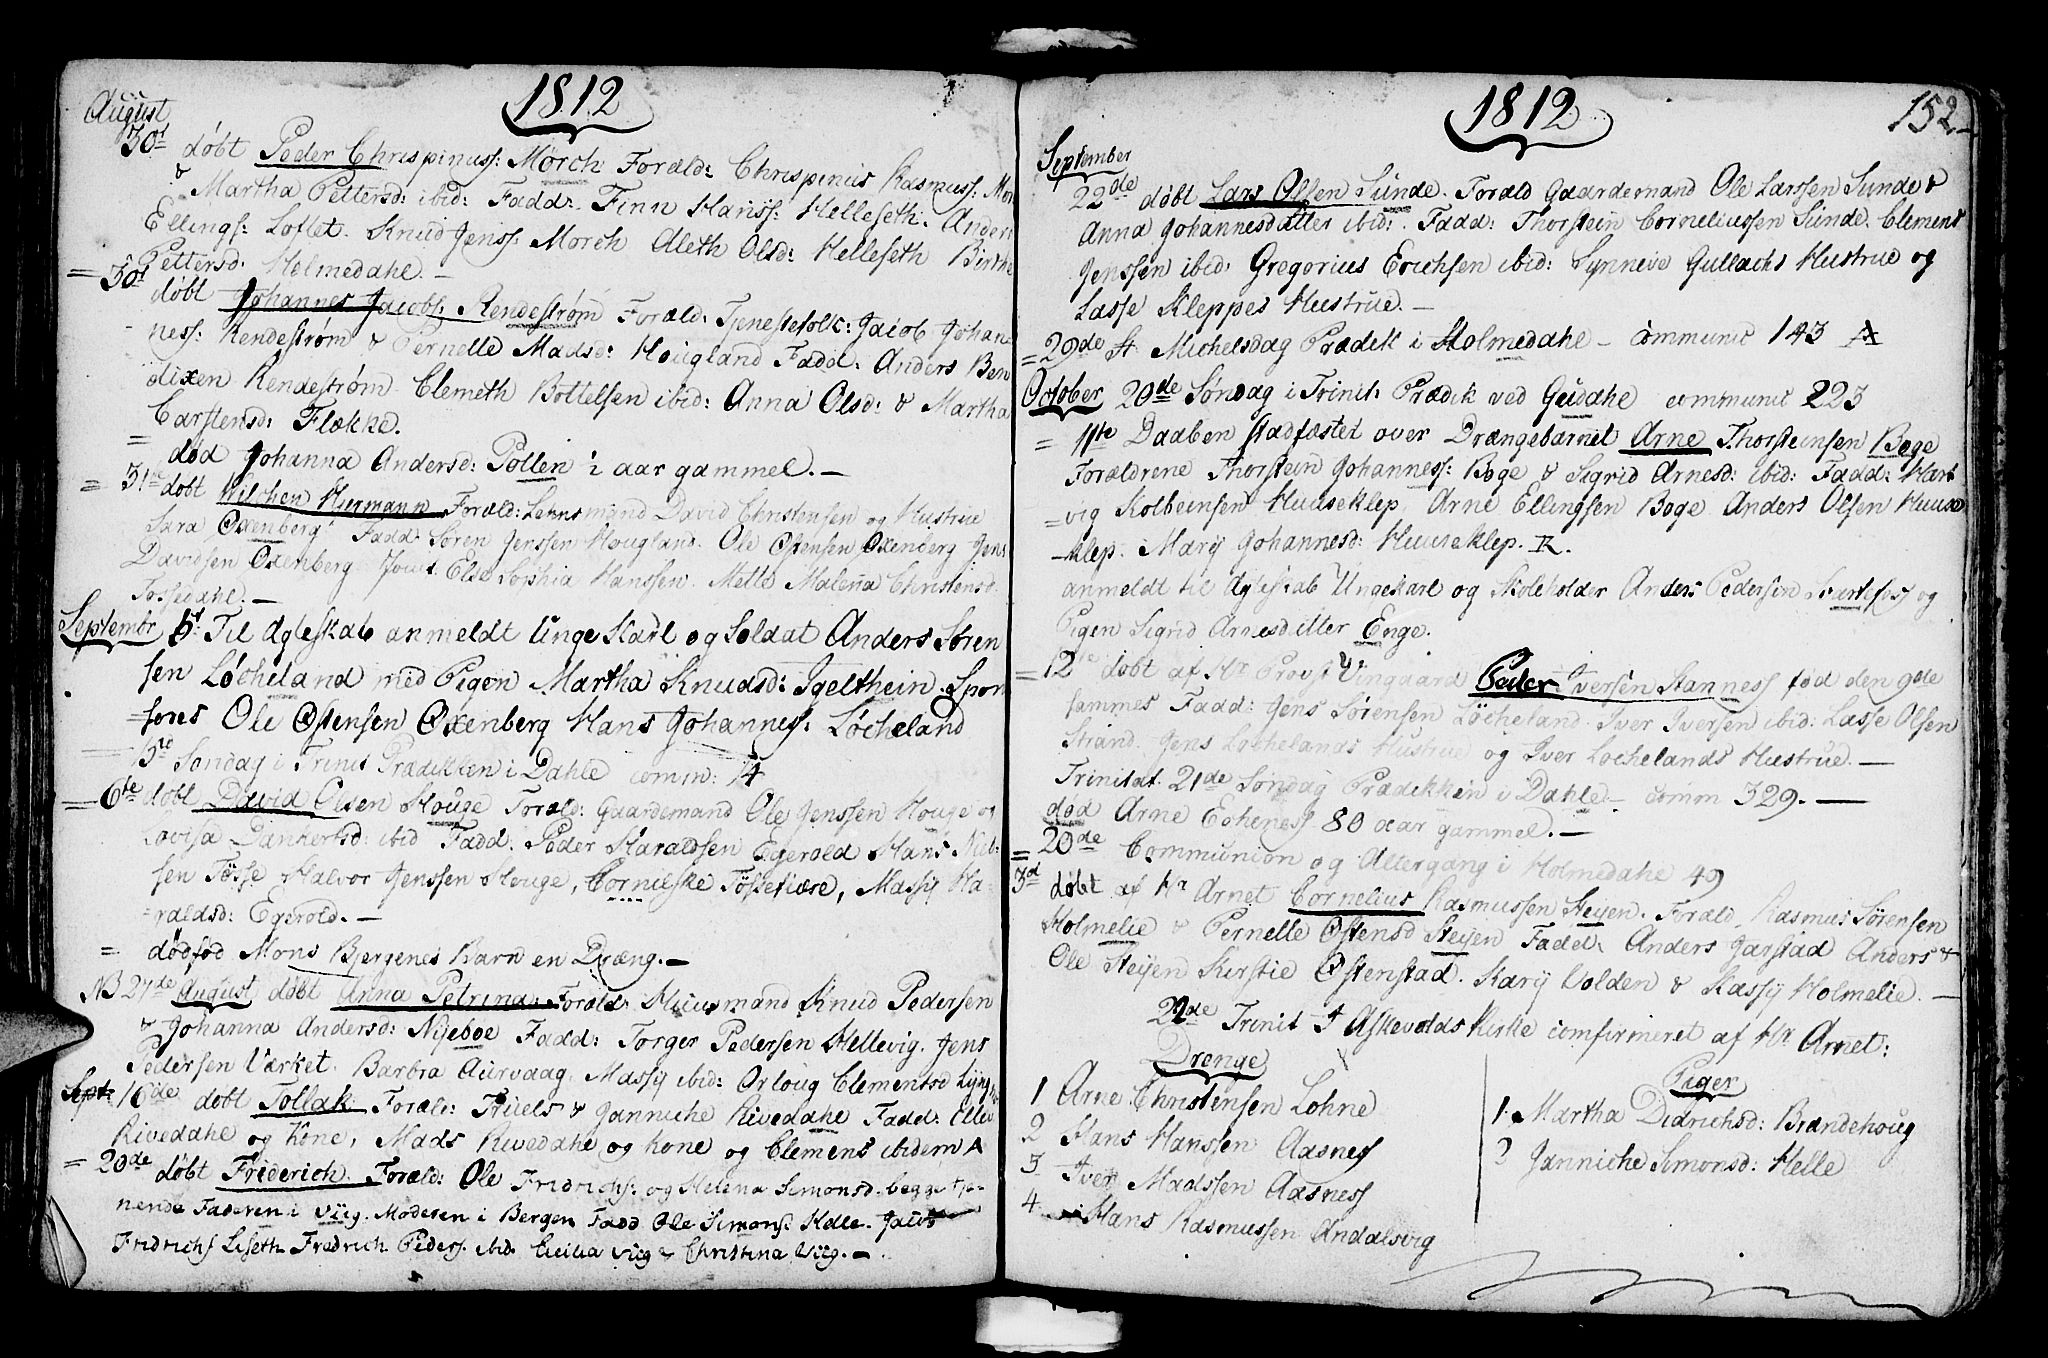 1812
August
30t døbt Peder Chrispinuss: Mørch Foræld: Chrispinus Rasmuss: Mør
& Martha Pettersd: ibid: Fadd: Finn Hanss: Helleseth: Anders
Ellings: Loftet. Knud Jenss: Mørch Aleth Olsd: Helleseth Birthe
Pettersd: Holmedahl. —
= 30t døbt Johannes Jacobs: Rendestrøm Foræld: Tjenestefolk: Jacob Johan
ness: Rendestrøm & Pernelle Madsd: Hougland Fadd: Anders Ben
dixen Rendestrøm Clemeth Bottelsen ibid: Anna Olsd: & Martha
Carstensd: Flække.
= død Johanna Andersd: Pollen i aar gammel. —
= 31te døbt Wilchen Hiermann Foræld: Lehnsmand David Christensen og Hustrue
Sara Oxenberg Fadd: Søren Jenssen Hougland. Ole Østensen Oxenberg Jens
Davidsen Oxenberg Else Sophia Hanssen. Mette Malena Christensd.
Fossedahl. —
Septembr 5t Til Ægteskab anmeldt Unge Karl og Soldat Anders Søren
sen Løcheland med Pigen Martha Knudsd: Igelthein. Spon
sores Ole Østensen Oxenberg Hans Johanness: Løcheland
Søndag i Trinit Prædikken i Dahle comm: 14
= 6te døbt David Olsen Houge Foræld: Gaardemand Ole Jenssen Houge og
Lovisa Dankertsd: ibid Fadd: Peder Haraldsen Egerold Hans Niel
sen Tøsse Halvor Jenssen Houge, Cornelske Tøssefiære, Massÿ Ha
raldsd: Egerold. —
= dødfød Mons Bjergenes Barn en Dræng. —
NB 27de August døbt Anna Petrina Foræld: Huusmand Knud Pedersen
& Johanna Andersd: Nÿeboe Fadd: Torger Pedersen Hellevig. Jens
Pedersen Værket. Barbra Aurvaag. Massÿ ibid: Orloug Clementsd Lÿng
Sept: 16de døbt Tollak Foræld: Niels & Janniche Rivedahl Fadd: Elle
Rivedahl og Kone, Mads Rivedahl og kone og Clemens ibidem A
= 20de døbt Friderich. Foræld: Ole Fridrichs: og Helena Simonsd. begge tje
nende Faderen i Viig. Moderen i Bergen Fadd Ole Simons: Helle. Jacob
Fridrichs Liseth Fredrich Peders: ibid. Cicilia Viig & Christina Viig. —
1812
152
September
22de døbt Lars Olsen Sunde. Foræld Gaardemand Ole Larssen Sunde &
Anna Johannesdatter ibid: Fadd: Thorstein Corneliussen Sunde. Clemens
Jenssen ibid: Gregorius Erichsen ibid: Synneve Gullachs Hustrue og
Lasse Kleppes Hustrue. —
= 29de St. Michelsdag Prædik i Holmedahl — communic 143 A
October 20de Søndag i Trinit: Prædik ved Guldahl communic 223
= 11te Daaben stadfæstet over Drængebarnet Arne Thorsteinsen Boge
Forældrene Thorstein Johanness: Boge & Sigrid Arnesd: ibid: Fadd: Hart
= vig Kolbeinsen Huuseklep Arne Ellingsen Boge Anders Olsen Huuse
klep. Marÿ Johannesd: Huuseklep. R.
anmeldt til Ægteskab Ungekarl og Skoleholder Anders Pedersen og
Pigen Sigrid Arnesdatter Enge.
= 12te døbt af Hr Provst Vingaard Peder Iversen Stanness fød den 9de
sammes Fadd: Jens Sørensen Løcheland. Iver Iversen ibid: Lasse Olsen
Strand. Jens Løchelands Hustrue og Iver Løchelands Hustrue. —
Trinitat. 21de Søndag Prædikken i Dahle. — comm 329. —
død Arne Echeness 80 aar gammel. —
= 20de Communion og Altergang i Holmedahl 49
3d døbt af Hr Arnet Cornelius Rasmussen Steÿen. Foræld Rasmus Sørensen
Holmelie & Pernelle Østensd Steÿen Fadd: Anders Jarstad Anders &
Ole Steÿen Kirstie Østenstad. Karÿ Volden & Kassÿ Holmelie. —
22de Trinit I Askevolds Kirke comfirmeret af Hr Arnet:
Drenge
1 Arne Christensen Lohne
2 Hans Hanssen Aasness
3 Iver Madssen Aasness
4 Hans Rasmussen Andalsvig
Piger
1. Martha Didrichsd: Brandehoug
2 Janniche Simonsd: Helle